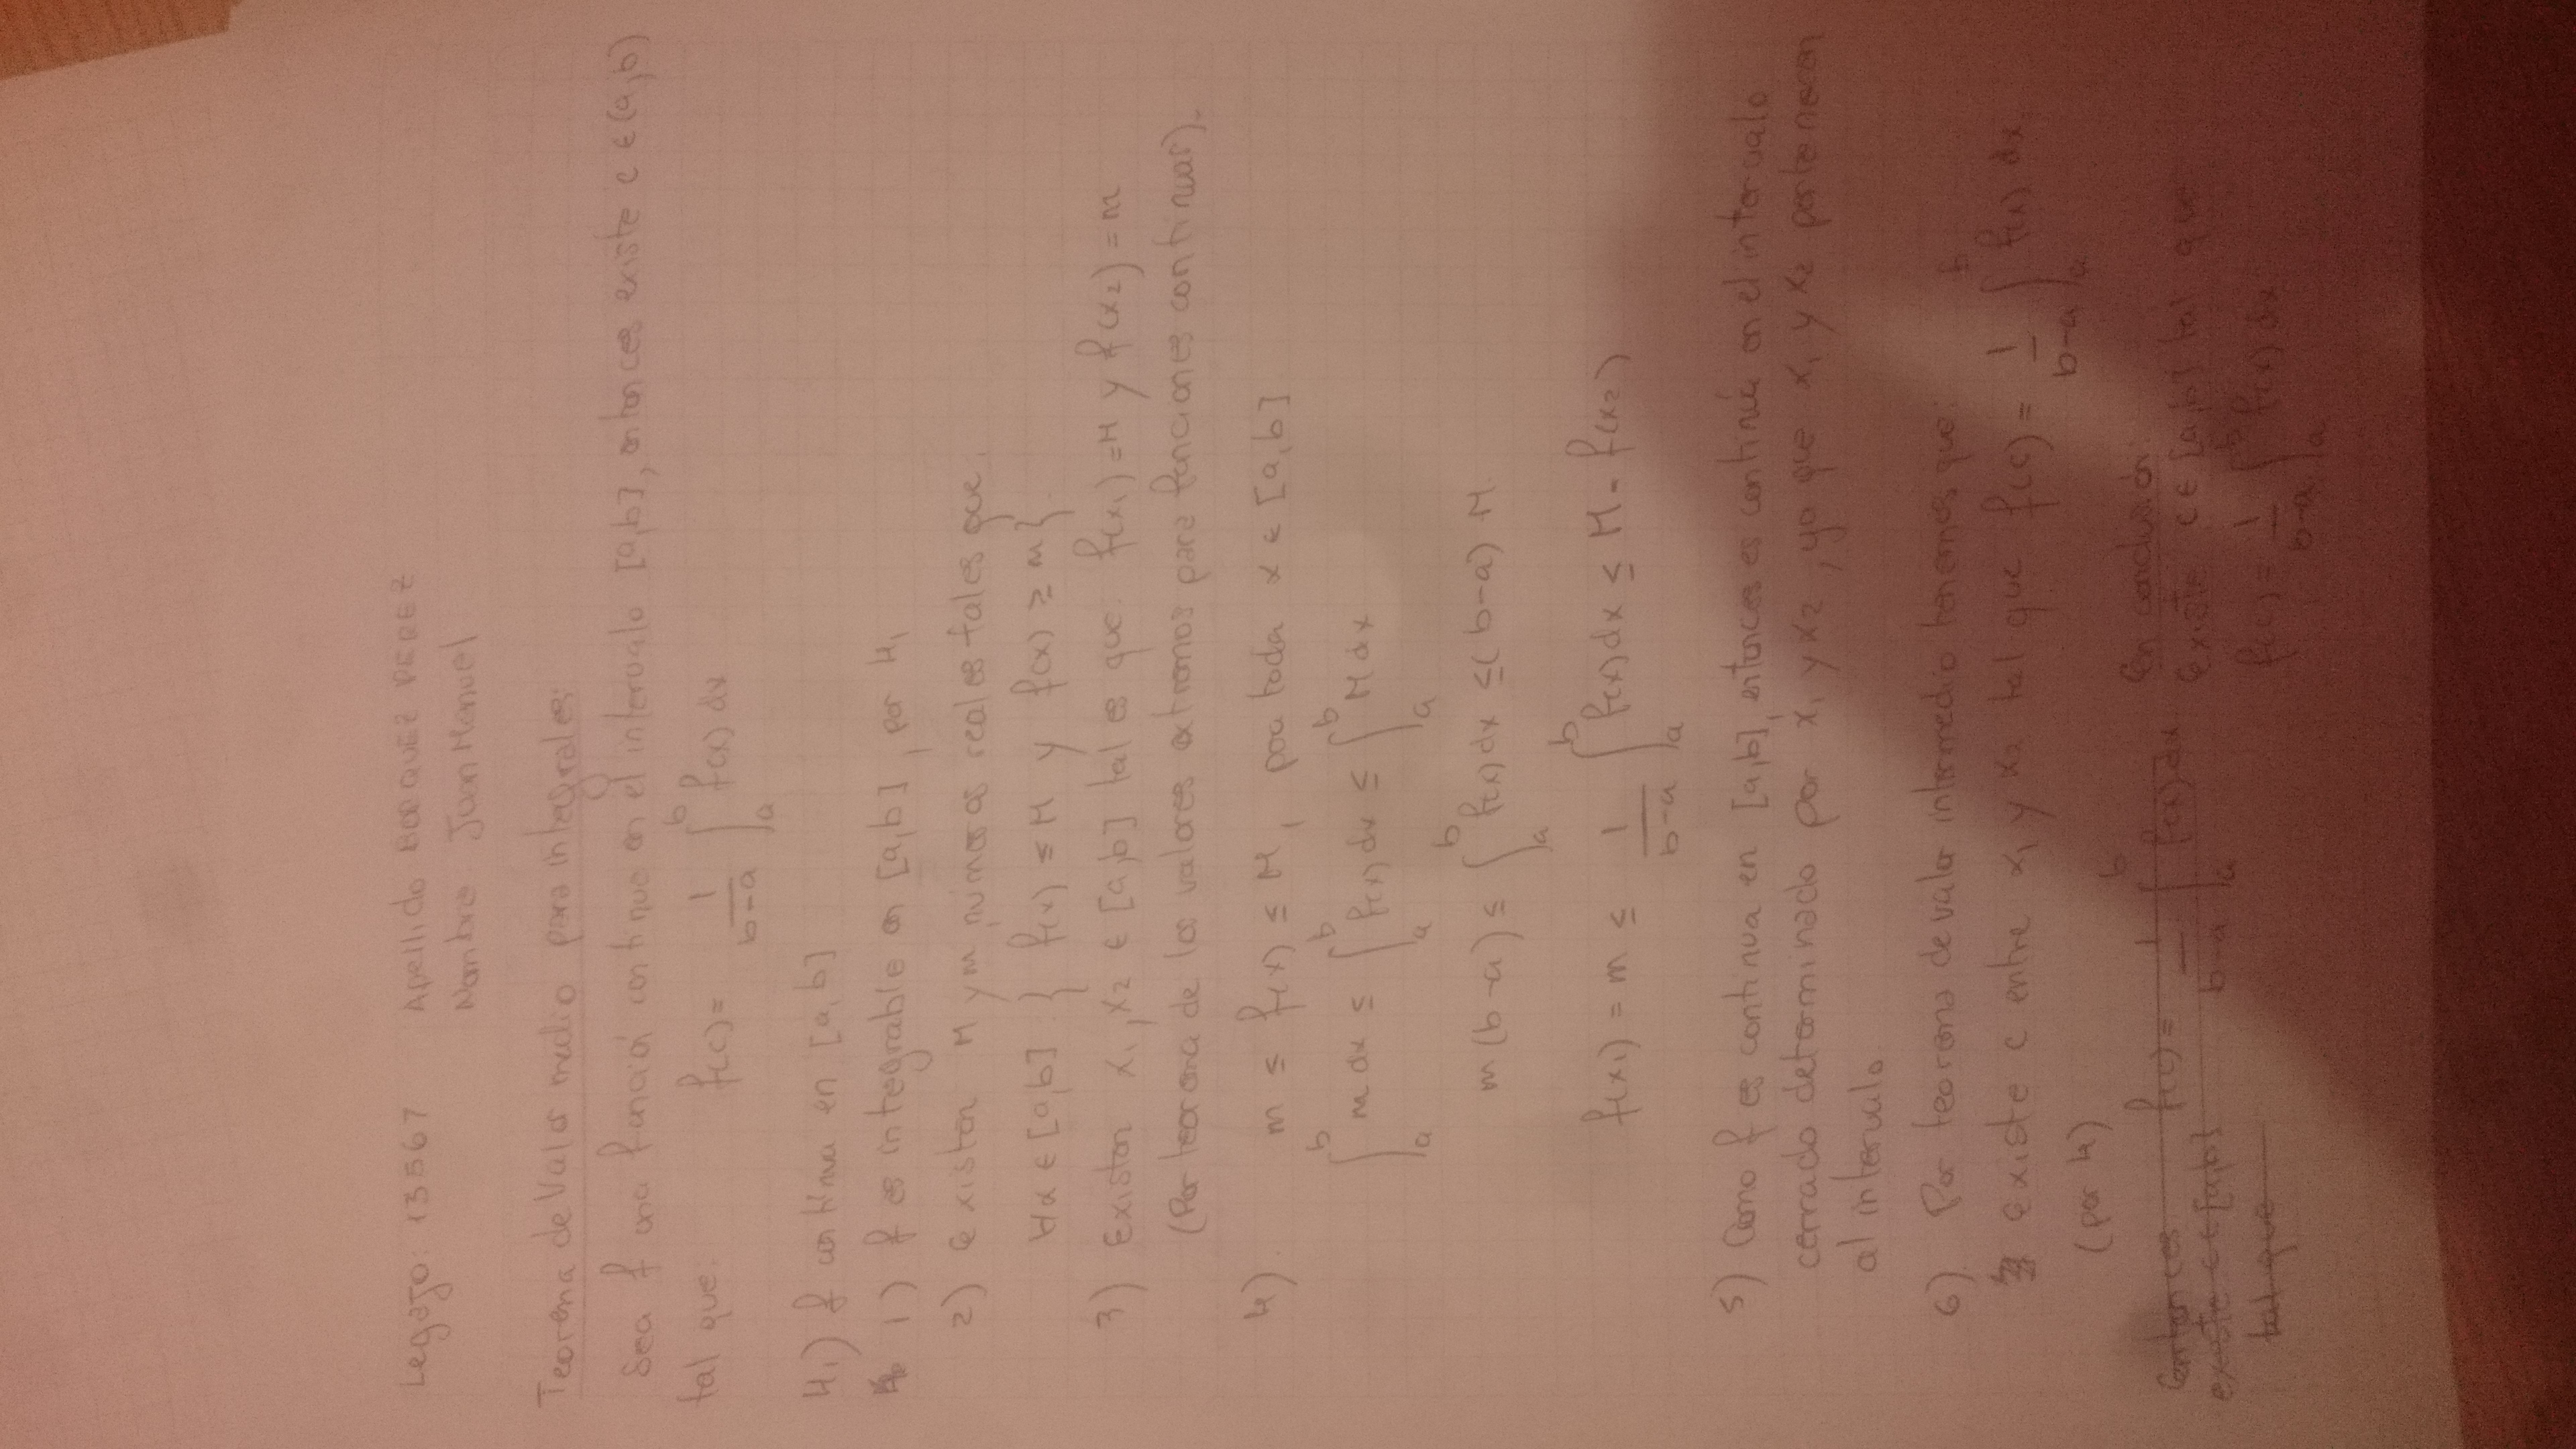 Legajo: 13567 Apellido BORQUEZ PEREZ
Nombre Juan Manuel
Teorema de Valor medio para integrales:
Sea f una función continua en el intervalo [a,b], entonces existe c ∈ (a,b)
tal que: f(c) = 1/(b-a) ∫_a^b f(x) dx
H₁) f continua en [a,b]
1) f es integrable en [a,b], por H₁
2) existen M y m números reales tales que:
∀x ∈ [a,b] : } f(x) ≤ M y f(x) ≥ m }
3) Existen x₁, x₂ ∈ [a,b] tales que: f(x₁) = M y f(x₂) = m
(Por teorema de los valores extremos para funciones continuas).
4) m ≤ f(x) ≤ M, para toda x ∈ [a,b]
∫_a^b m dx ≤ ∫_a^b f(x) dx ≤ ∫_a^b M dx
m(b-a) ≤ ∫_a^b f(x) dx ≤ (b-a) M.
f(x₁) = m ≤ 1/(b-a) ∫_a^b f(x) dx ≤ M = f(x₂)
5) Como f es continua en [a,b], entonces es continua en el intervalo
cerrado determinado por x₁ y x₂, ya que x₁ y x₂ pertenecen
al intervalo.
6) Por teorema de valor intermedio tenemos que:
existe c entre x₁ y x₂ tal que f(c) = 1/(b-a) ∫_a^b f(x) dx.
(por 4)
Entonces f(c) = 1/(b-a) ∫_a^b f(x) dx
existe c ∈ [a,b]
tal que
En conclusión:
Existe c ∈ [a,b] tal que
f(c) = 1/(b-a) ∫_a^b f(x) dx